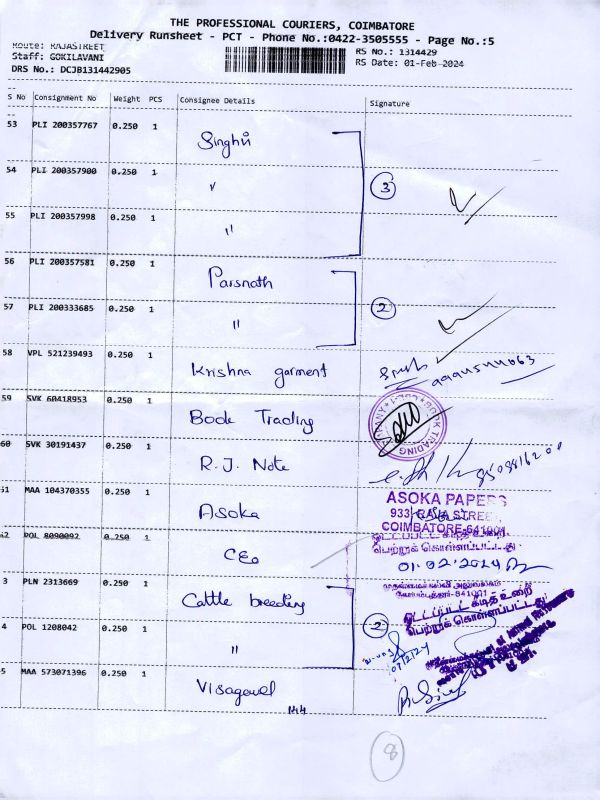 THE PROFESSIONAL COURIERS, COIMBATORE
Delivery Runsheet - PCT - Phone No.:0422-3505555 - Page No.:5
Route: RAJASTREET
Staff: GOKILAVANI
DRS No.: DCJB131442905
RS No.: 1314429
RS Date: 01-Feb-2024
S No Consignment No Weight PCS Consignee Details Signature
53 PLI 200357767 0.250 1 Singhvi
54 PLI 200357900 0.250 1 "
3
55 PLI 200357998 0.250 1 "
56 PLI 200357581 0.250 1 Parsnath
2
57 PLI 200333685 0.250 1 "
58 VPL 521239493 0.250 1 Krishna garment
59 SVK 60418953 0.250 1 Book Trading
BOOK TRADING
60 SVK 30191437 0.250 1 R.J. Note
61 MAA 104370355 0.250 1 Asoka
ASOKA PAPERS
933, RAJA STREET
COIMBATORE-641001
62 POL 8090092 0.250 1 CEO
ஒட்டப்பட்ட கடித உறை
பெற்றுக் கொள்ளப்பட்டது
01.02.2024
3 PLN 2313669 0.250 1 Cattle breeding
ஒட்டப்பட்ட கடித உறை
பெற்றுக் கொள்ளப்பட்டது
4 POL 1208042 0.250 1 "
2
5 MAA 573071396 0.250 1 Visagavel
144
8